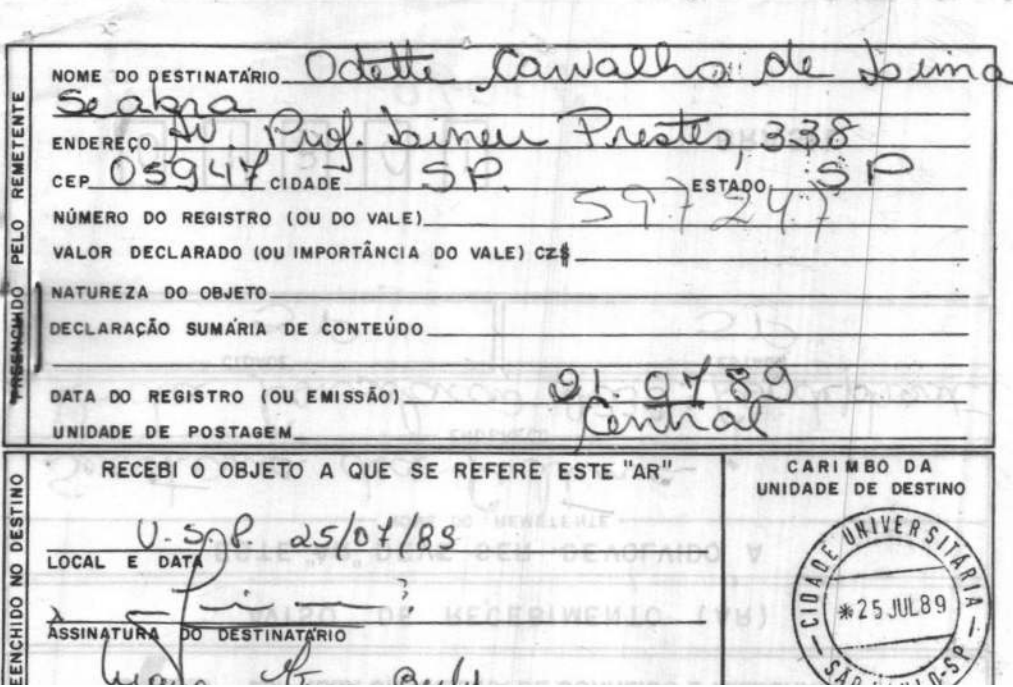 PREENCHIDO PELO REMETENTE
NOME DO DESTINATÁRIO Odette Carvalho de Lima
Seabra
ENDEREÇO AV. Prof. Lineu Prestes, 338
CEP 05947 CIDADE SP. ESTADO SP
NÚMERO DO REGISTRO (OU DO VALE) 597247
VALOR DECLARADO (OU IMPORTÂNCIA DO VALE) CZ$
NATUREZA DO OBJETO
DECLARAÇÃO SUMÁRIA DE CONTEÚDO
DATA DO REGISTRO (OU EMISSÃO) 21.07 89
UNIDADE DE POSTAGEM Central
EENCHIDO NO DESTINO
RECEBI O OBJETO A QUE SE REFERE ESTE "AR"
U.S.P. 25/07/89
LOCAL E DATA
ASSINATURA DO DESTINATÁRIO
CARIMBO DA
UNIDADE DE DESTINO
CIDADE UNIVERSITÁRIA
*25 JUL89
SÃO PAULO-SP